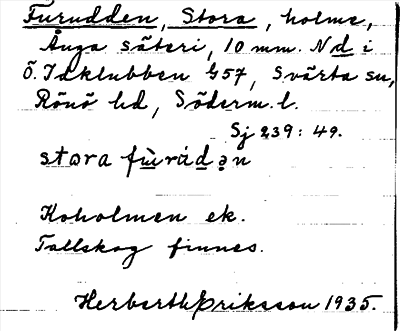 Furudden, Stora, holme,
Ånga säteri, 10 mm. Nd i
Ö. Idklubben G57, Svärta sn,
Rönö hd, Söderm. l.
Sj 239: 49.
stora fu̠̇rúd̠ə̣n
Koholmen ek.
Tallskog finnes.
Herberth Eriksson 1935.